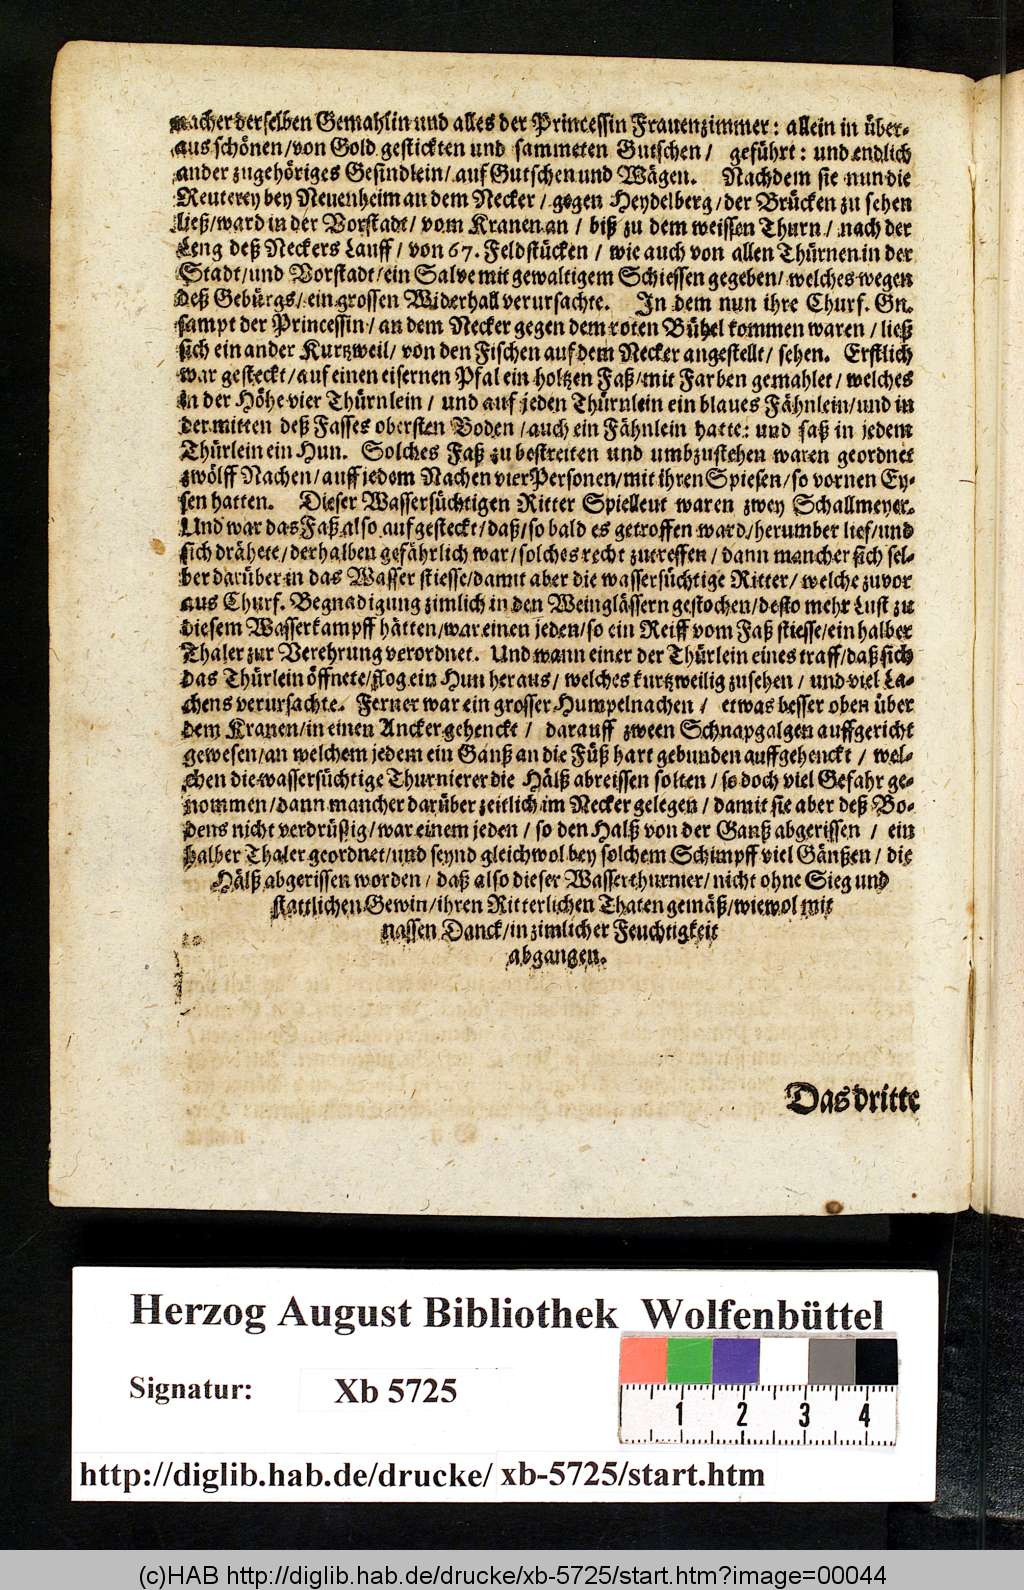 nacher derselben Gemahlin und alles der Princessin Frauenzimmer: allein in über-
aus schönen/von Gold gestickten und sammeten Gutschen/ geführt: und endlich
ander zugehöriges Gesindlein/ auf Gutschen und Wägen. Nachdem sie nun die
Reuterey bey Neuenheim an dem Necker/ gegen Heydelberg/ der Brücken zu sehen
ließ/ward in der Vorstadt/ vom Kranen an/ biß zu dem weissen Thurn/ nach der
Leng deß Neckers Lauff/ von 67. Feldstücken/ wie auch von allen Thürnen in der
Stadt/und Vorstadt/ein Salve mit gewaltigem Schiessen gegeben/ welches wegen
deß Gebürgs/ ein grossen Widerhall verursachte. In dem nun ihre Churf. Gn.
sampt der Princessin/ an dem Necker gegen dem roten Bühel kommen waren/ ließ
sich ein ander Kurtzweil/ von den Fischen auf dem Necker angestellt/ sehen. Erstlich
war gesteckt/auf einen eisernen Pfal ein holtzen Faß/mit Farben gemahlet/ welches
in der Höhe vier Thürnlein/ und auf jeden Thürnlein ein blaues Fähnlein/und in
der mitten deß Fasses obersten Boden/auch ein Fähnlein hatte: und saß in jedem
Thürlein ein Hun. Solches Faß zu bestreiten und umbzustehen waren geordnet
zwölff Nachen/ auff jedem Nachen vier Personen/mit ihren Spiesen/so vornen Ey-
sen hatten. Dieser Wassersüchtigen Ritter Spielleut waren zwey Schallmeyer.
Und war das Faß also aufgesteckt/daß/so bald es getroffen ward/herumber lief/und
sich drähete/derhalben gefährlich war/solches recht zutreffen/ dann mancher sich sel-
ber darüber in das Wasser stiesse/damit aber die wassersüchtige Ritter/ welche zuvor
aus Churf. Begnadigung zimlich in den Weinglässern gestochen/desto mehr Lust zu
diesem Wasserkampff hätten/war einen jeden/so ein Reiff vom Faß stiesse/ein halber
Thaler zur Verehrung verordnet. Und wann einer der Thürlein eines traff/daß sich
das Thürlein öffnete/flog ein Hun heraus/ welches kurtzweilig zusehen/ und viel La-
chens verursachte. Ferner war ein grosser Humpelnachen/ etwas besser oben über
dem Kranen/in einen Ancker gehenckt/ darauff zween Schnapgalgen auffgericht
gewesen/an welchem jedem ein Ganß an die Füß hart gebunden auffgehenckt/ wel-
chen die wassersüchtige Thurnierer die Hälß abreissen solten/ so doch viel Gefahr ge-
nommen/dann mancher darüber zeitlich im Necker gelegen/ damit sie aber deß Bo-
dens nicht verdrüßig/war einem jeden/ so den Halß von der Ganß abgerissen/ ein
halber Thaler geordnet/und seynd gleichwol bey solchem Schimpff viel Gänßen/ die
Hälß abgerissen worden/ daß also dieser Wasserthurnier/ nicht ohne Sieg und
stattlichen Gewin/ihren Ritterlichen Thaten gemäß/wiewol mit
nassen Danck/in zimlicher Feuchtigkeit
abgangen.
Das dritte
Herzog August Bibliothek Wolfenbüttel
Signatur: Xb 5725
1 2 3 4
http://diglib.hab.de/drucke/ xb-5725/start.htm
(c)HAB http://diglib.hab.de/drucke/xb-5725/start.htm?image=00044